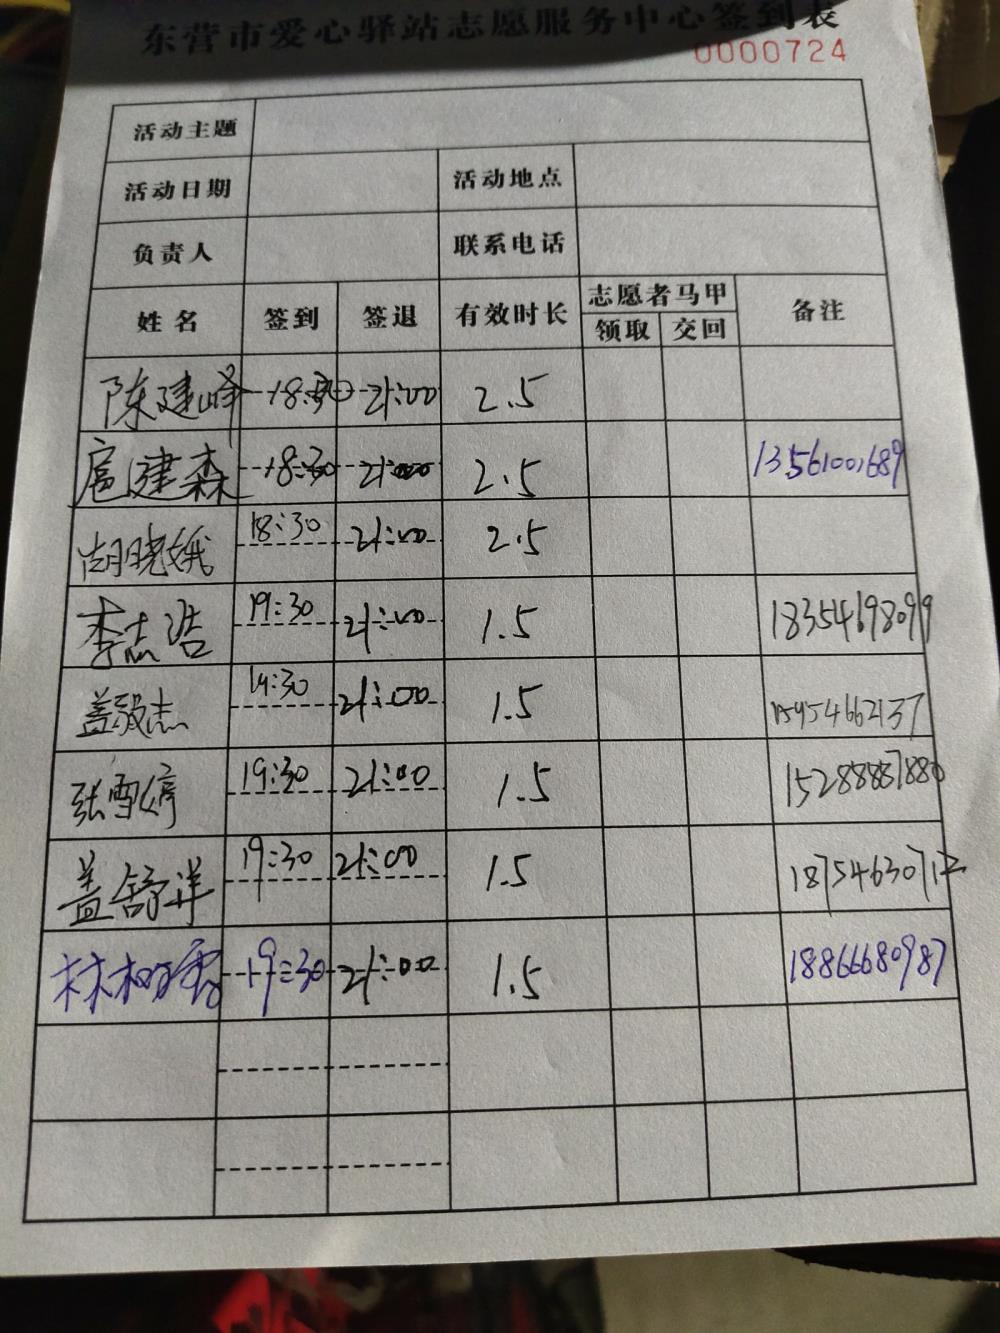 东营市爱心驿站志愿服务中心签到表
0000724
活动主题
活动日期 活动地点
负责人 联系电话
姓名 签到 签退 有效时长 志愿者马甲 备注
领取 交回
陈建峰 18:30 21:00 2.5
扈建森 18:30 21:00 2.5 13561001689
胡晓娥 18:30 21:00 2.5
李志浩 19:30 21:00 1.5 18354698099
盖毅志 19:30 21:00 1.5 15954662137
张雪婷 19:30 21:00 1.5 15288887880
盖舒洋 19:30 21:00 1.5 18754630712
林树 19:30 21:00 1.5 18866680987